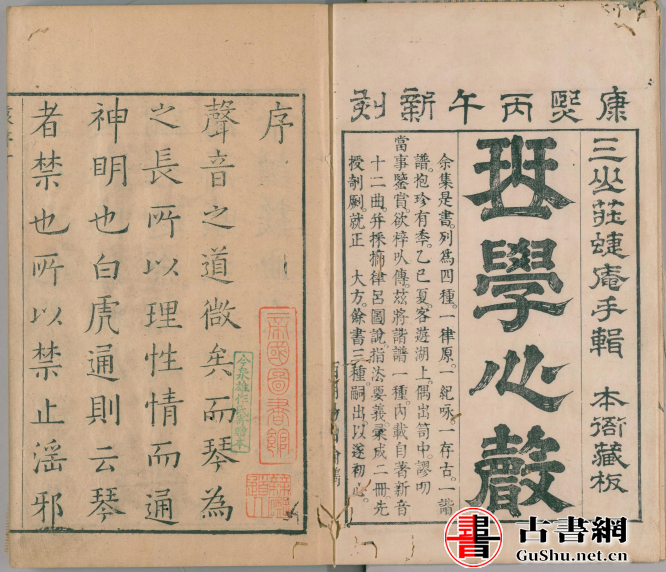 康熙丙午新刻
三山莊蝶庵手輯 本衙藏板
琴學心聲
余集是書。列爲四種。一律原。一紀咏。一存古。一諧
譜。抱珍有季。乙巳夏。客遊湖上。偶出笥中。謬叨
當事鑒賞欲梓以傳。茲將諧譜一種。內載自著新音
十二曲。并採擲律呂圖說。指法要義。彙成二冊。先
授剞劂。就正 大方。餘書三種。嗣出以遂初心。
序
聲音之道微矣而琴為
之長所以理性情而通
神明也白虎通則云琴
者禁也所以禁止淫邪
帝國圖書館
今泉雄作氏寄贈本
書
古書網
GuShu.net.cn